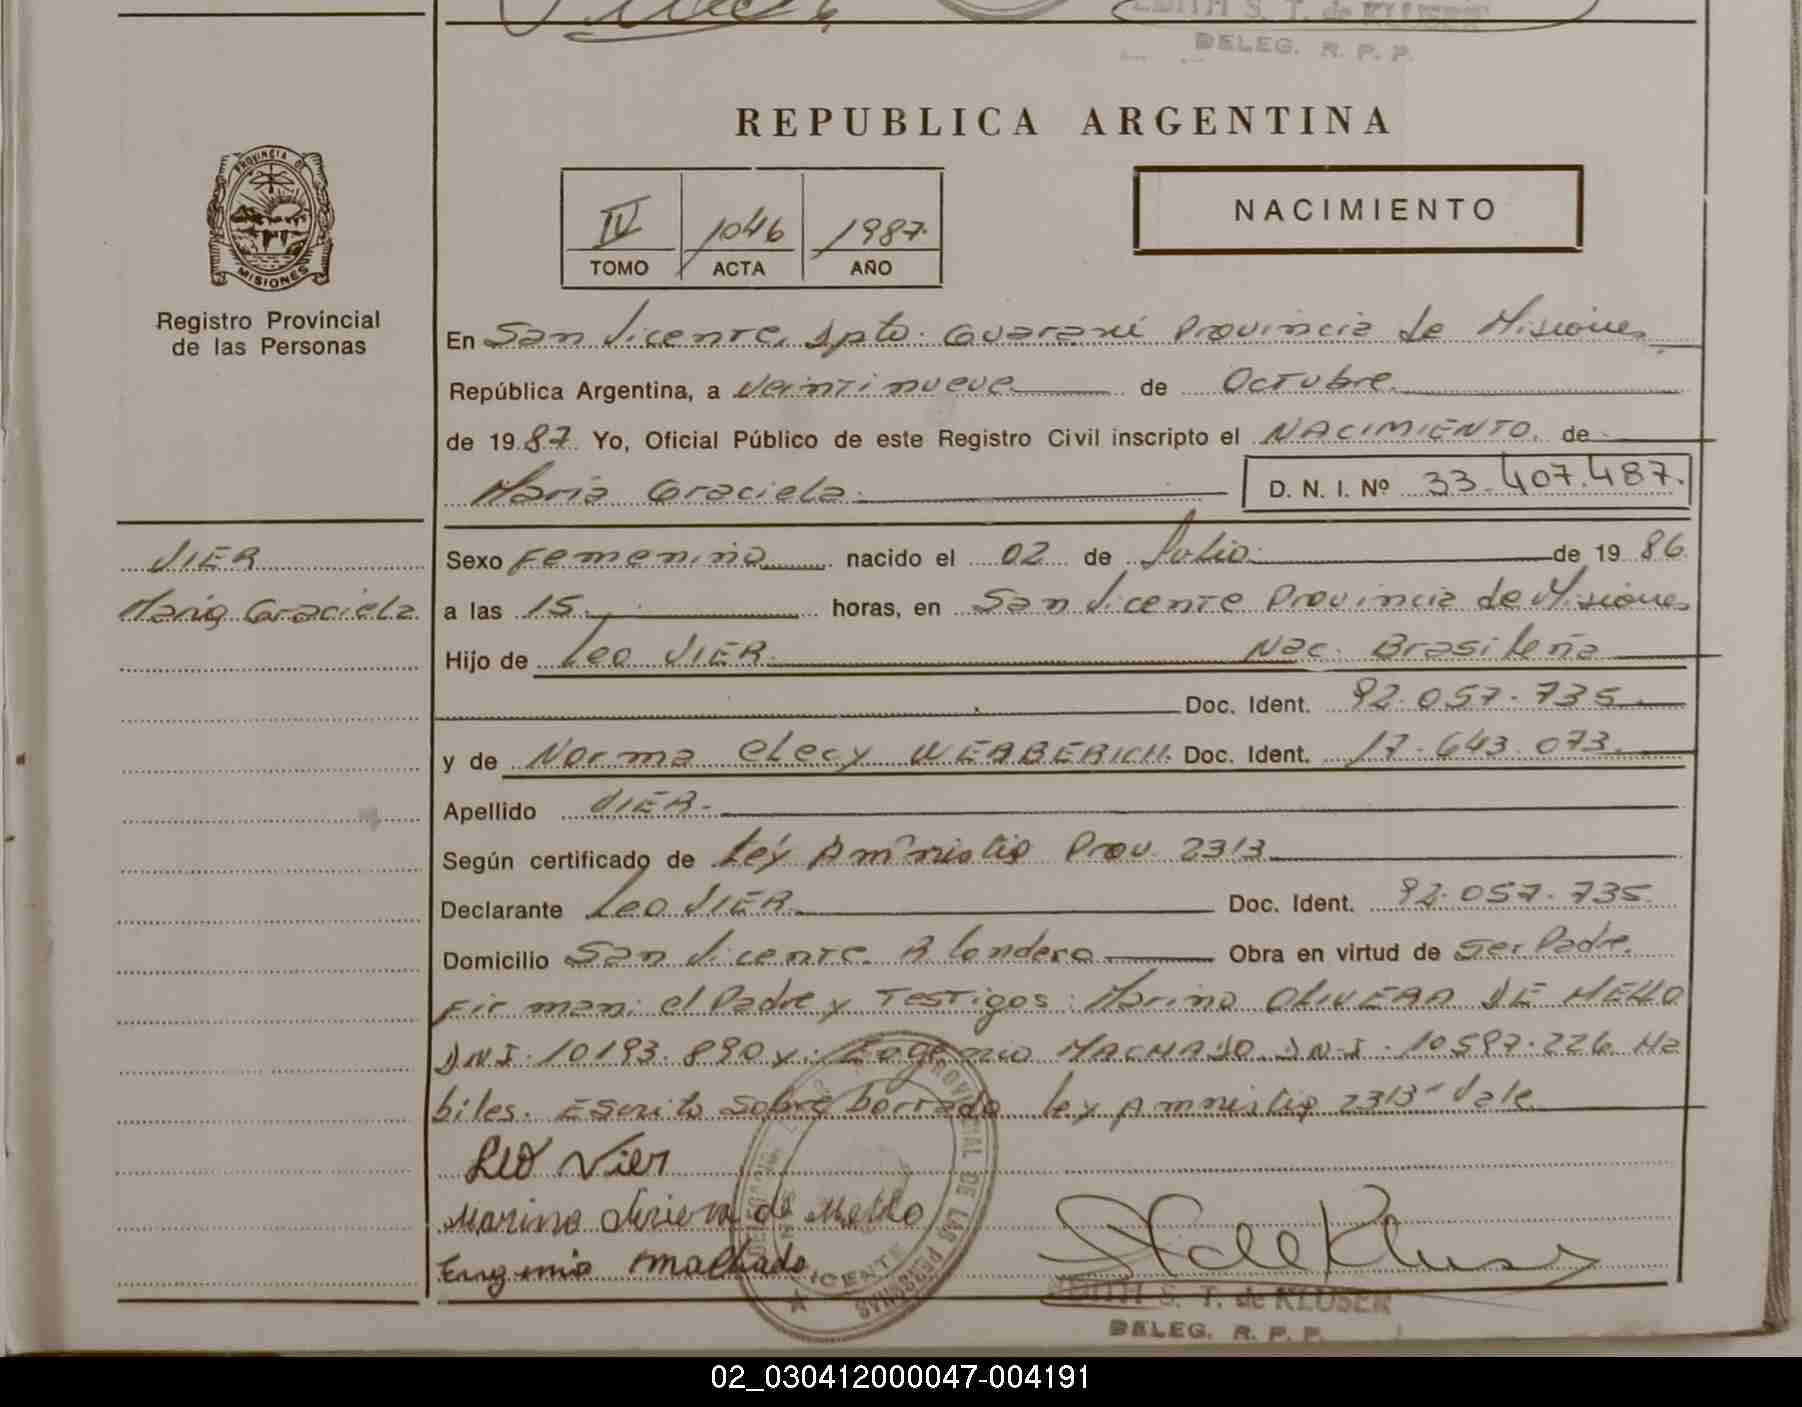 EDITH S. T. de KLUSER
DELEG. R. P. P.
REPUBLICA ARGENTINA
PROVINCIA DE
MISIONES
Registro Provincial
de las Personas
IV 1046 1987.
TOMO ACTA AÑO
NACIMIENTO
En San Vicente, Dpto. Guaraní Provincia de Misiones
República Argentina, a Veintinueve de Octubre
de 1987. Yo, Oficial Público de este Registro Civil inscripto el NACIMIENTO. de
Maria Graciela. D. N. I. Nº 33.407.487.
VIER
Maria Graciela.
Sexo Femenino nacido el 02 de Julio. de 19 86.
a las 15. horas, en San Vicente Provincia de Misiones
Hijo de Leo VIER Nac. Brasileña
Doc. Ident. 92.057.735
y de Norma Elecy WERBERICH. Doc. Ident. 17.643.073.
Apellido VIER.
Según certificado de Ley Amnistia Prov. 2313
Declarante Leo VIER Doc. Ident. 92.057.735.
Domicilio San Vicente. Obra en virtud de Ser Padre.
Firman: el Padre y Testigos: Marino OLIVERA DE MELLO
D.N.I. 10193.890 y: Eugenio MACHADO D.N.I. 10597.226 Ha
biles. Escrito sobre borrado ley Amnistia 2313" Vale
Leo Vier
Marino Olivera de Mello
Eugenio Machado.
PROVINCIAL DE LAS PERSONAS
VICENTE
EDITH S. T. de KLUSER
DELEG. R. P. P.
02_030412000047-004191